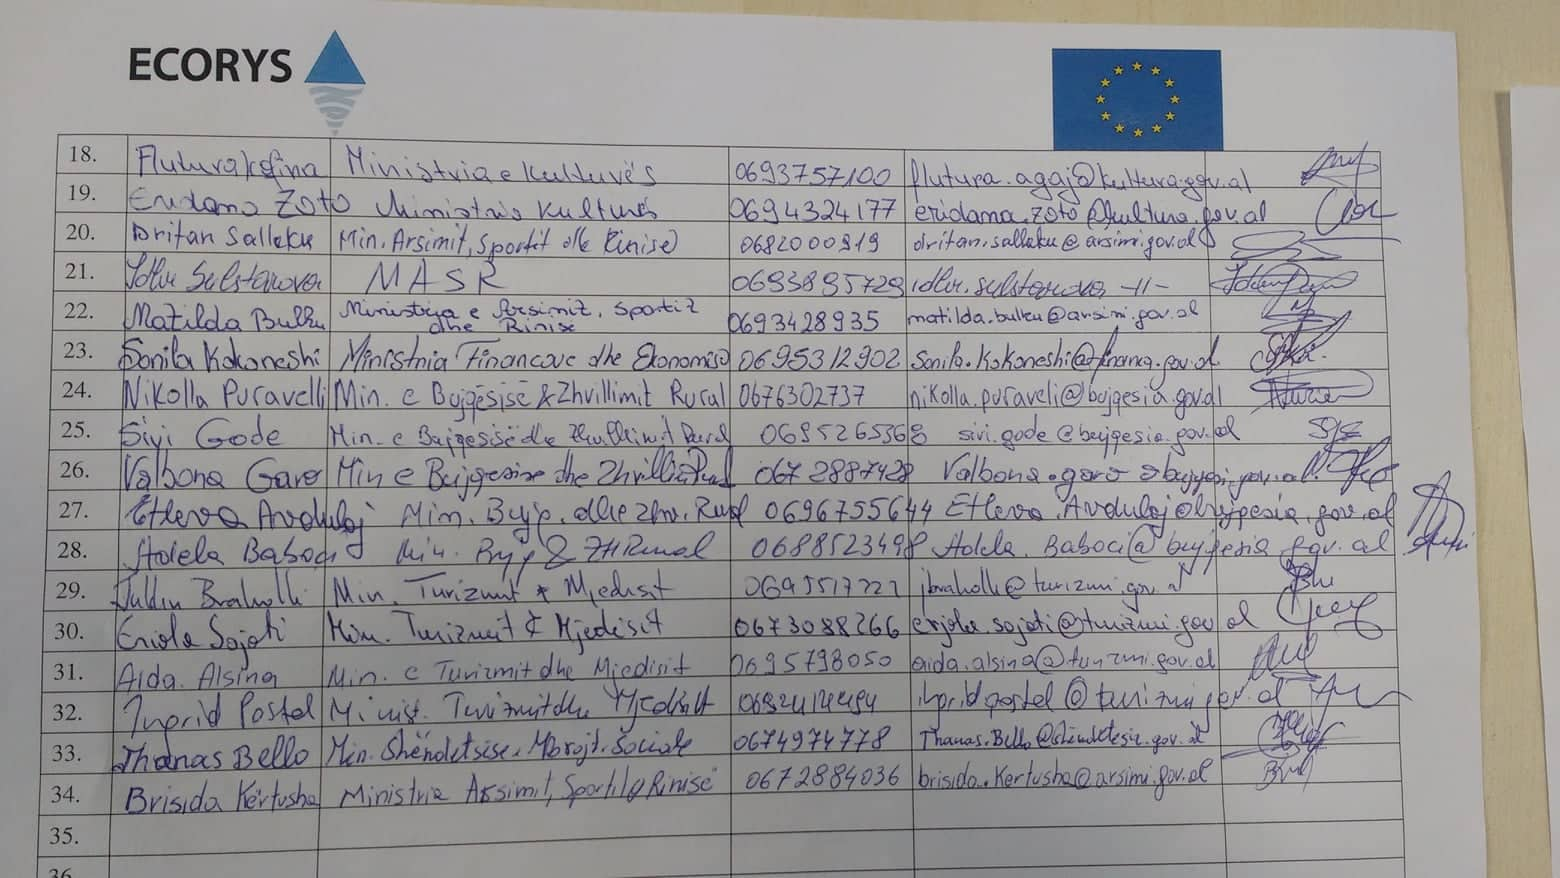 ECORYS
18. Ministria e Kulturës 0693757100 flutura.agaj@kultura.gov.al
19. Eridama Zoto Ministria Kulturës 0694324177 eridama.zoto@kultura.gov.al
20. Dritan Salleku Min. Arsimit, Sportit dhe Rinisë 0682000819 dritan.salleku@arsimi.gov.al
21. MASR 0693895729 -11-
22. Matilda Bulku Ministria e Arsimit, Sportit
dhe Rinise 0693428935 matilda.bulku@arsimi.gov.al
23. Sonila Kokoneshi Ministria Financave dhe Ekonomisë 0695312902 Sonila.Kokoneshi@financa.gov.al
24. Nikolla Puravelli Min. e Bujqësisë & Zhvillimit Rural 0676302737 nikolla.puraveli@bujqesia.gov.al
25. Sivi Gode Min. e Bujqesisë dhe Zhvillimit Rural 0695265368 sivi.gode@bujqesia.gov.al
26. Valbona Garo Min e Bujqesise dhe Zhvillimit Rural
27. Etleva Avdulaj Min. Bujq. dhe Zhv. Rural 0696755644 Etleva.Avdulaj@bujqesia.gov.al
28. Adela Baboci Min. Bujq & ZH Rural 0688523498 Adela.Baboci@bujqesia.gov.al
29. Braholli Min. Turizmit & Mjedisit jbraholli@turizmi.gov.al
30. Eriola Sojati Min. Turizmit & Mjedisit 0673088266 erjola.sojati@turizmi.gov.al
31. Aida Alsina Min. e Turizmit dhe Mjedisit 0695798050 aida.alsina@turizmi.gov.al
32. Ingrid Postol Minist. Turizmit dhe Mjedisit
33. Thanas Bello Min. Shëndetsisë. Mbrojt. Sociale 0674974778 Thanas.Bello@shendetesia.gov.al
34. Brisida Kërtusha Ministria Arsimit, Sportit Rinisë 0672884036 brisida.Kertusha@arsimi.gov.al
35.
36